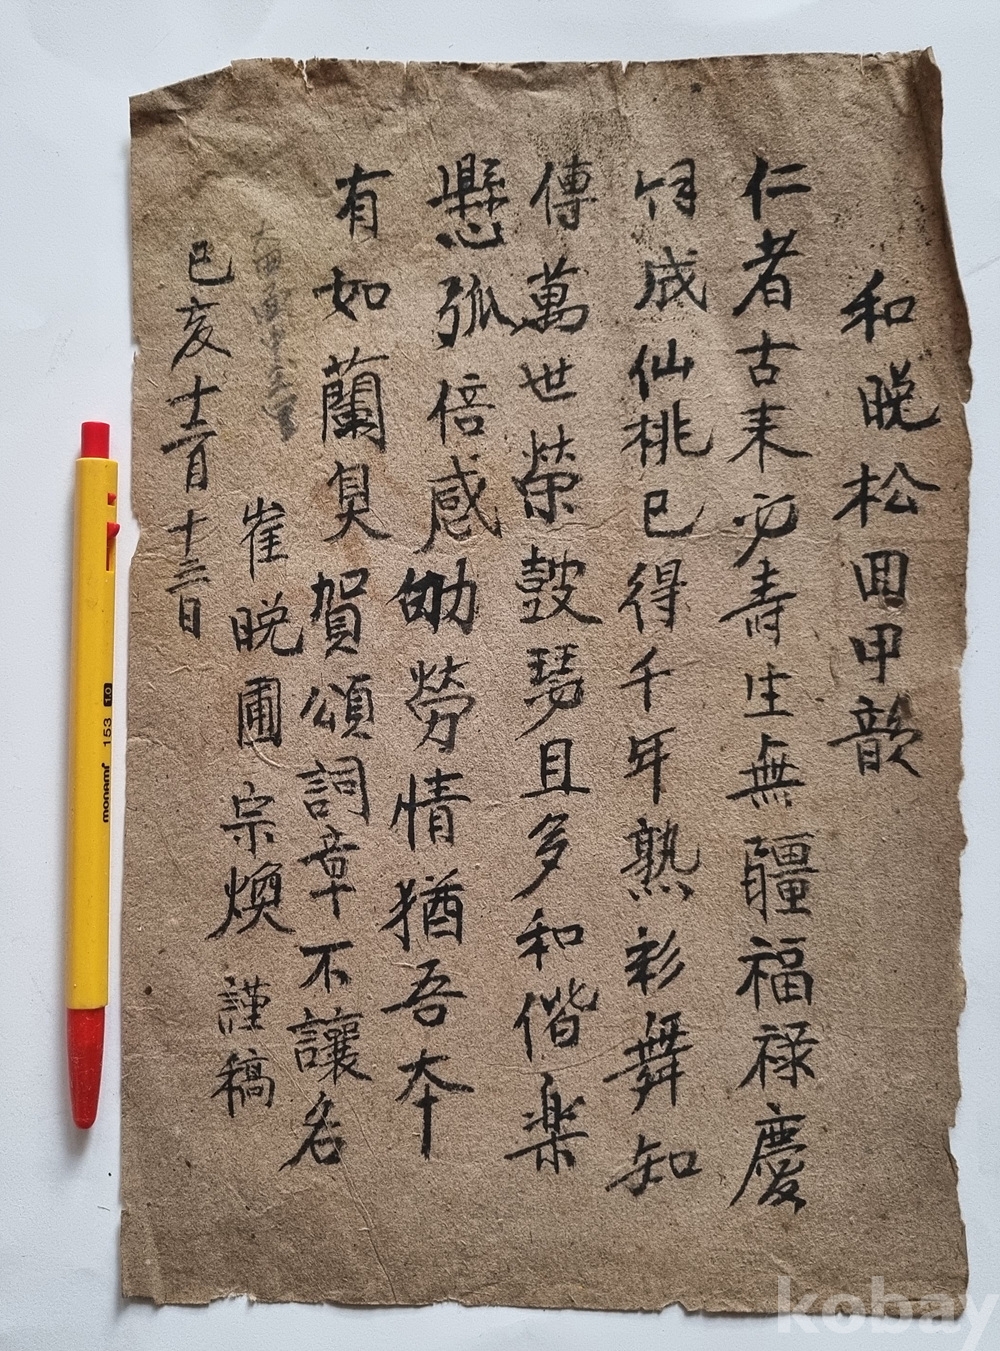 和晩松囬甲韻
仁者古来必寿生無疆福禄慶
成仙桃已得千年熟彩舞知
傳萬世榮皷瑟且多和偕楽
懸弧倍感劬勞情猶吾夲
有如蘭臭賀頌詞章不讓名
崔晩圃宗煥 謹稿
己亥十二月十三日
monami 153 1.0
kobay